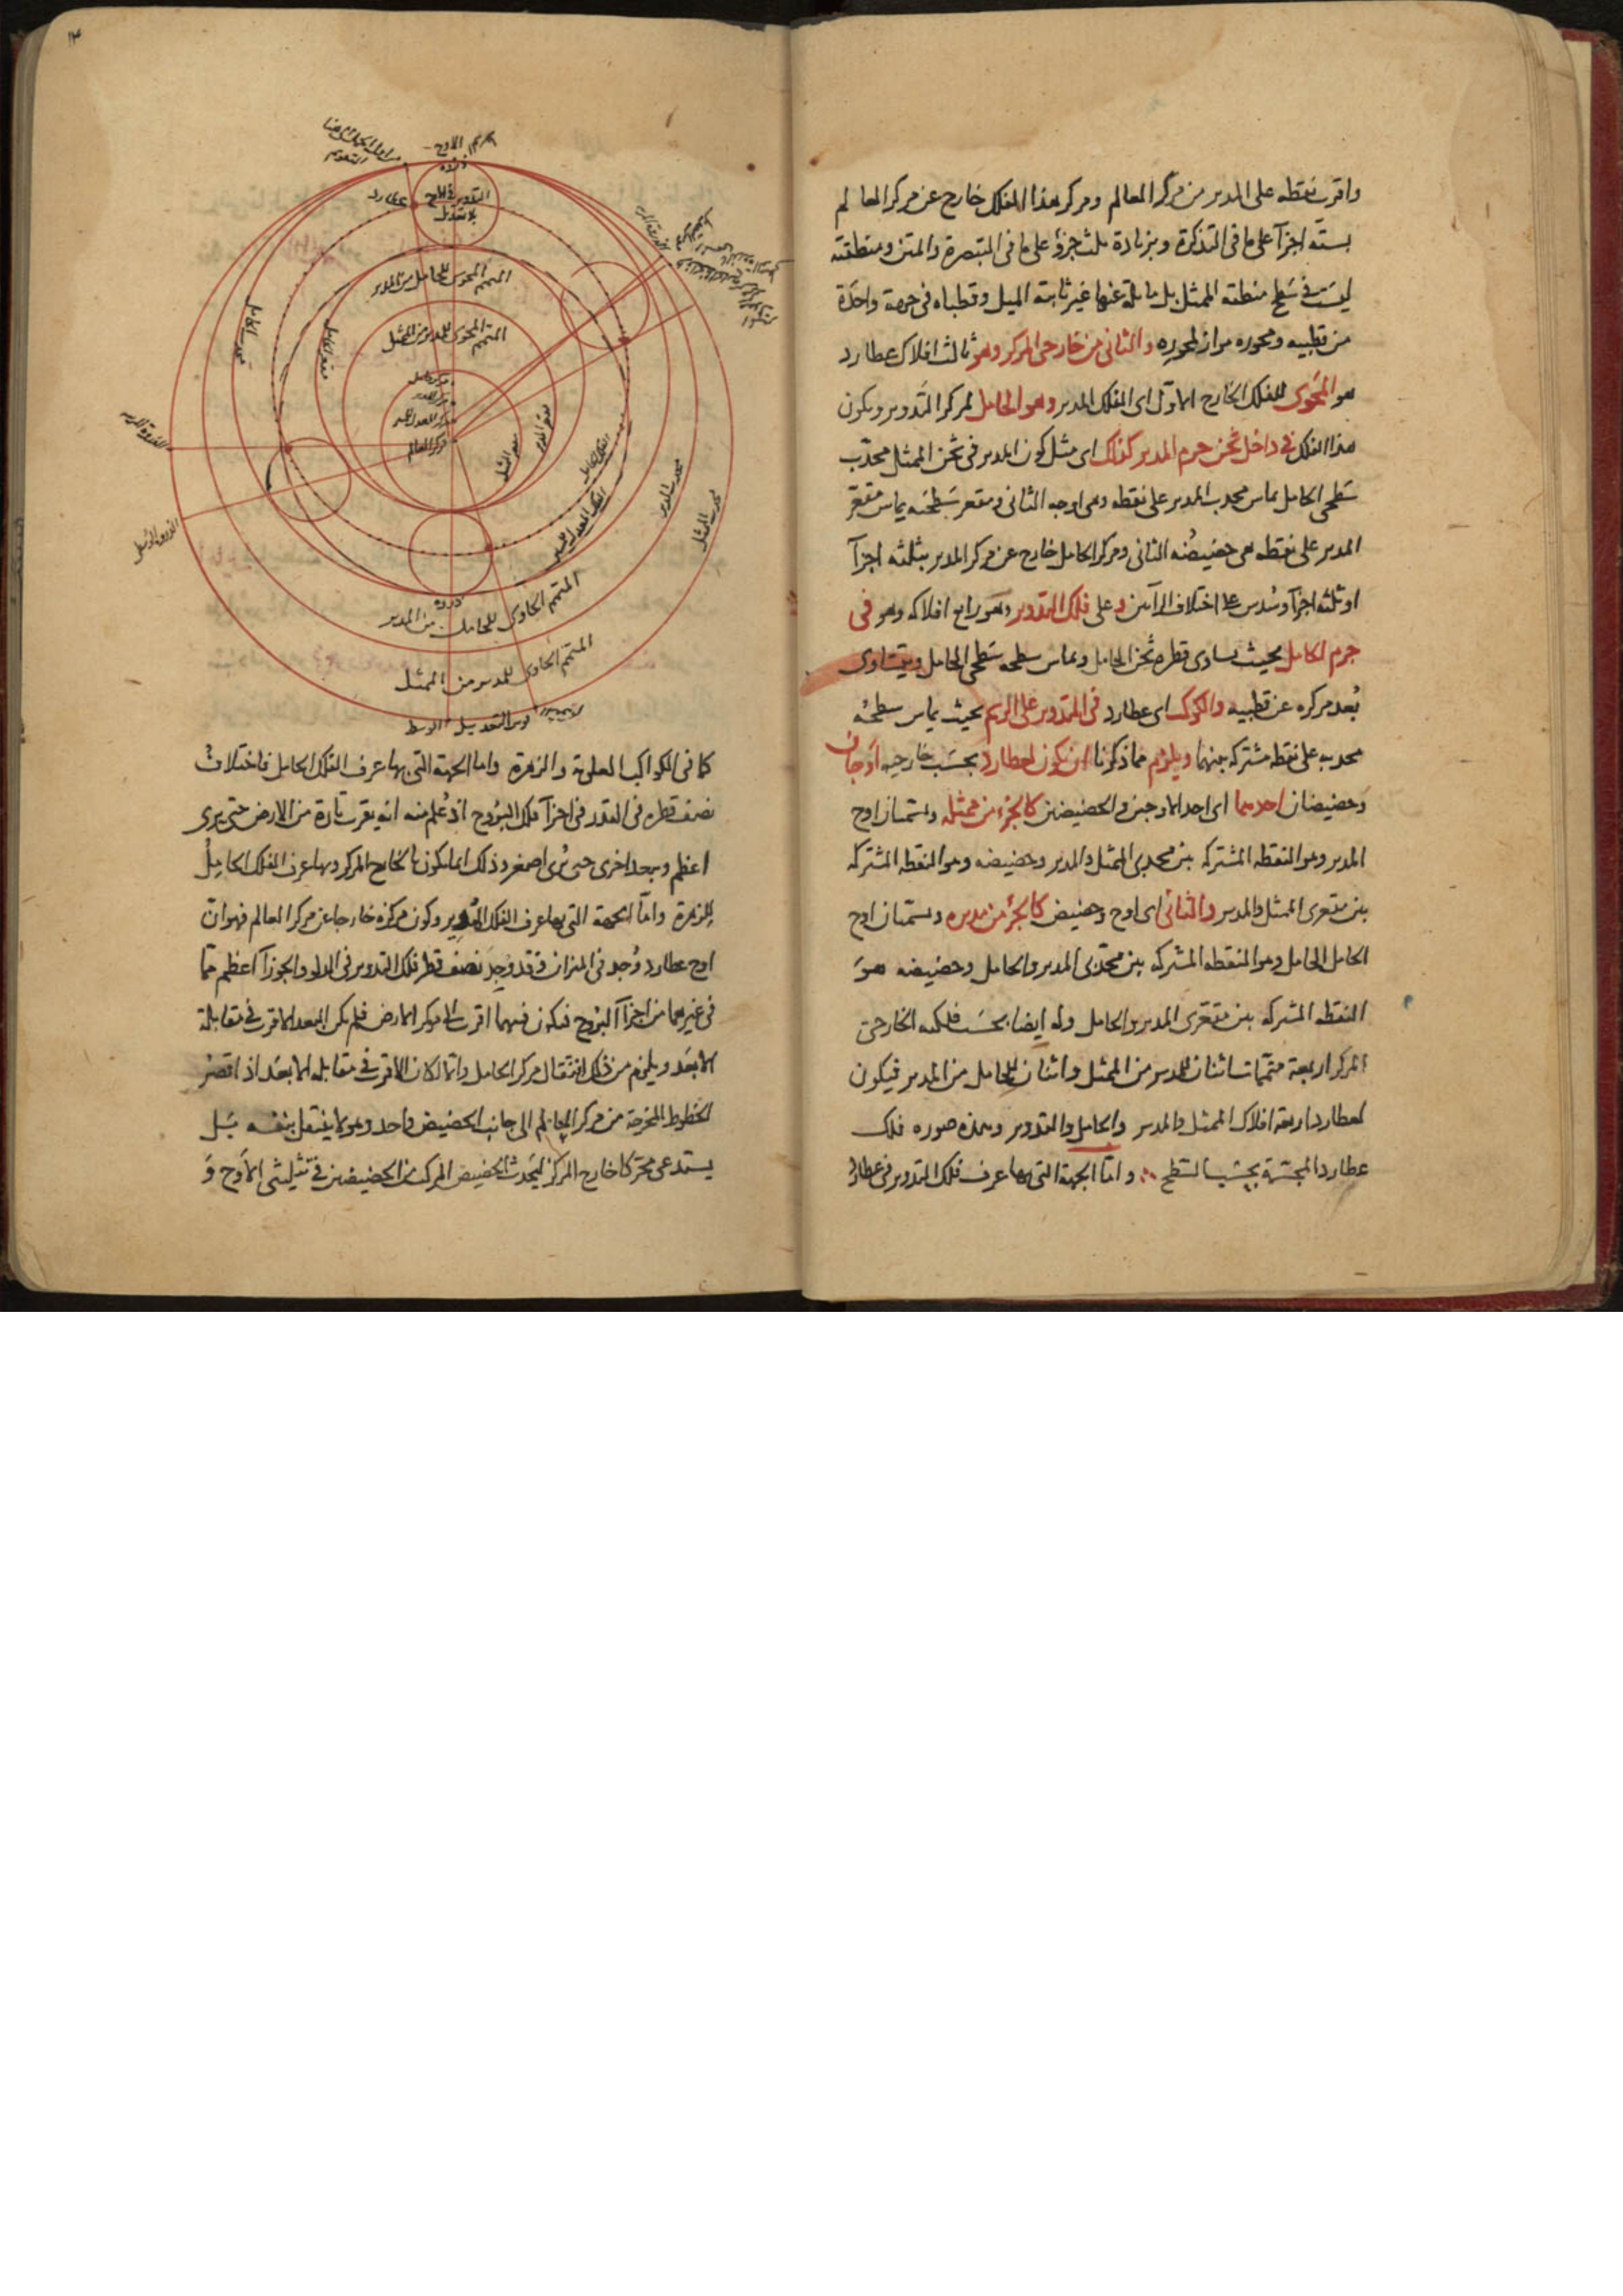 واقرب نقطه على المدير من مركز العالم ومركز هذا الفلك خارج عن مركز العالم
بستة اجزآ على ما فى التذكرة وبزيادة ثلث جزؤ على ما فى التبصرة والمتن ومنطقته
ليست فى سطح منطقة الممثل بل مائلة عنها غير ثابتة الميل وقطباه فى جهة واحدة
من قطبيه ومحوره مواز لمحوره والثانى من خارجى المركز وهو ثالث افلاك عطارد
هو المحوى للفلك الخارج الاول اى الفلك المدير وهو الحامل لمركز التدوير ويكون
هذا الفلك فى داخل ثخن جرم المدير كذلك اى مثل كون المدير فى ثخن الممثل محدب
سطحى الحامل يماس محدب المدير على نقطه وهى اوجه الثانى ومقعر سطحيه يماس مقعر
المدير على نقطه هى حضيضه الثانى ومركز الحامل خارج عن مركز المدير بثلثه اجزآ
او ثلثه اجزآ وسدس على اختلاف الرأيين و على فلك التدوير وهو رابع افلاكه وهو فى
جرم الحامل بحيث يساوى قطره ثخن الحامل ويماس سطحه سطحى الحامل ويتساوى
بعد مركزه عن قطبيه والكوكب اى عطارد فى التدوير على الرسم بحيث يماس سطحه
محدبه على نقطه مشتركه بينهما ويلزم مما ذكرنا ان يكون لعطارد بحسب خارجيه اوجان
وحضيضان احدهما اى احد الاوجين والحضيضين كالجزء من ممثله ويسميان اوج
المدير وهو النقطه المشتركه بين محدبى الممثل والمدير وحضيضه وهو النقطه المشتركه
بين مقعرى الممثل والمدير والثانى اى اوج وحضيض كالجزء من مديره ويسميان اوج
الحامل الحامل وهو النقطه المشتركه بين محدبى المدير والحامل وحضيضه هو
النقطه المشتركه بين مقعرى المدير والحامل وله ايضا بحسب فلكيه الخارجى
المركز اربعة متممات اثنان للمدير من الممثل واثنان للحامل من المدير فيكون
لعطارد اربعة افلاك الممثل والمدير والحامل والتدوير وهذه صورة فلك
عطارد المجسمة بحسب السطح واما الجهة التى بها عرف فلك التدوير فى عطارد
الاوج
ذروه
عطارد
المتمم المحوى للحامل من المدير
المتمم المحوى للمدير من الممثل
مركز الحامل
مركز المدير
مركز معدل المسير
مركز العالم
محدب الحامل
مقعر الحامل
مقعر المدير
مقعر الممثل
الفلك الحامل
الفلك المعدل المسير
محدب المدير
محدب الممثل
الذروة المرئية
الذروة الوسطى
ذروه
المتمم الحاوى للحامل من المدير
المتمم الحاوى للمدير من الممثل
قوس التعديل الوسط
كما فى الكواكب العلوية والزهرة واما الجهة التى بها عرف الفلك الحامل فاختلاف
نصف قطره فى القدر فى اجزآ فلك البروج اذ علم منه انه يقرب تارة من الارض حتى يرى
اعظم ويبعد اخرى حتى يرى اصغر وذلك انما يكون بالخارج المركز وبها عرف الفلك الحامل
للزهرة واما الجهة التى بها عرف الفلك المدير وكون مركزه خارجا عن مركز العالم فهو ان
اوج عطارد وجد فى الميزان وقد وجد نصف قطر فلك التدوير فى الدلو والجوزآ اعظم مما
فى غيرهما من اجزآ البروج فيكون فيهما اقرب الى مركز الارض فلم يكن البعد الاقرب فى مقابلة
الابعد ويلزم من ذلك انتقال مركز الحامل والا لكان الاقرب فى مقابله الابعد اذ اقصر
الخطوط المخرجة من مركز العالم الى جانب الحضيض واحد وهو لا ينتقل بنفسه بل
يستدعى محركا خارج المركز ليحدث الحضيض المركب من الحضيضين فى تثليثى الاوج و